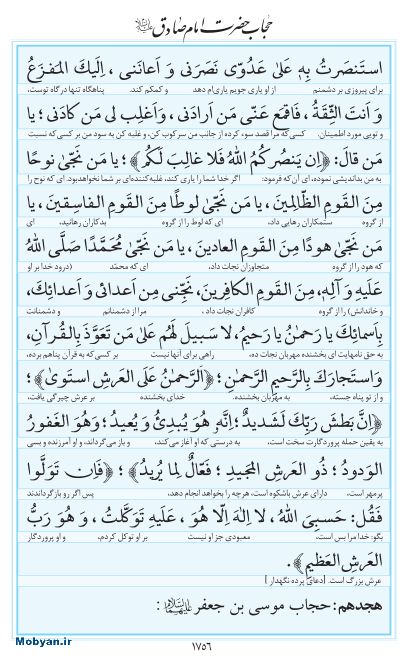 حجاب حضرت امام صادق علیه‌السلام
استَنصَرتُ بِهِ عَلىٰ عَدُوّى نَصَرَنى وَ اَعانَنى ، اِلَيكَ المَفزَعُ
برای پیروزی بر دشمنم از او یاری جویم یاری‌ام دهد و کمکم کند. پناهگاه تنها درگاه توست،
وَ اَنتَ الثِّقَةُ، فَاقمَع عَنّى مَن اَرادَنى ، وَاغلِب لى مَن كادَنى ؛ يا
و تویی مورد اطمینان. کسی‌که مرا قصد سوء کرده از جانب من سرکوب کن، و غلبه کن به سود من بر کسی‌که نسبت
مَن قالَ: ﴿اِن يَنصُركُمُ اللهُ فَلا غالِبَ لَكُم﴾ ؛ يا مَن نَجّىٰ نوحًا
به من بداندیشی نموده، ای آن‌که فرمود: اگر خدا شما را یاری کند، غلبه‌کننده‌ای بر شما نخواهدبود. ای که نوح را
مِنَ القَومِ الظّالِمينَ ، يا مَن نَجّىٰ لوطًا مِنَ القَومِ الفاسِقينَ ، يا
از گروه ستمکاران رهایی داد، ای که لوط را از گروه بدکاران رهانید، ای
مَن نَجّىٰ هودًا مِنَ القَومِ العادينَ، يا مَن نَجّىٰ مُحَمَّدًا صَلَّى اللهُ
که هود را از گروه متجاوزان نجات داد، ای که محمّد (درود خدا بر او
عَلَيهِ وَ آلِهِ، مِنَ القَومِ الكافِرينَ، نَجِّنى مِن اَعدائى وَ اَعدائِكَ،
و خاندانش) را از گروه کافران نجات داد، مرا از دشمنانم و دشمنانت
بِاَسمائِكَ يا رَحمٰنُ يا رَحيمُ، لا سَبيلَ لَهُم عَلىٰ مَن تَعَوَّذَ بِالقُرآنِ،
به حق نام‌هایت ای بخشنده مهربان نجات ده، راهی برای آنها نیست بر کسی‌که به قرآن پناهم برده،
وَاستَجارَ بِالرَّحيمِ الرَّحمٰنِ ؛ ﴿اَلرَّحمٰنُ عَلَى العَرشِ استَوىٰ﴾ ؛
و از تو پناه جسته، به مهربان بخشنده. خدای بخشنده بر عرش چیرگی یافت،
﴿اِنَّ بَطشَ رَبِّكَ لَشَديدٌ؛ اِنَّهُ هُوَ يُبدِئُ وَ يُعيدُ؛ وَ هُوَ الغَفورُ
به یقین حمله پروردگارت سخت است، به درستی که او آغاز می‌کند، و باز می‌گرداند، و او آمرزنده و بسی
الوَدودُ ؛ ذُو العَرشِ المَجيدِ ؛ فَعّالٌ لِما يُريدُ﴾ ؛ ﴿فَاِن تَوَلَّوا
پرمهر است، دارای عرش باشکوه است، هرچه را بخواهد انجام دهد، پس اگر رو بازگرداندند
فَقُل: حَسبِىَ اللهُ ، لا اِلٰهَ اِلّا هُوَ ، عَلَيهِ تَوَكَّلتُ ، وَ هُوَ رَبُّ
بگو: خدا مرا بس است، معبودی جز او نیست بر او توکل کردم، و او پروردگار
العَرشِ العَظيمِ﴾.
عرش بزرگ است. [دعای پرده نگهدار]
هجدهم: حجاب موسی بن جعفر علیهماالسلام :
۱۷۵۶
Mobyan.ir